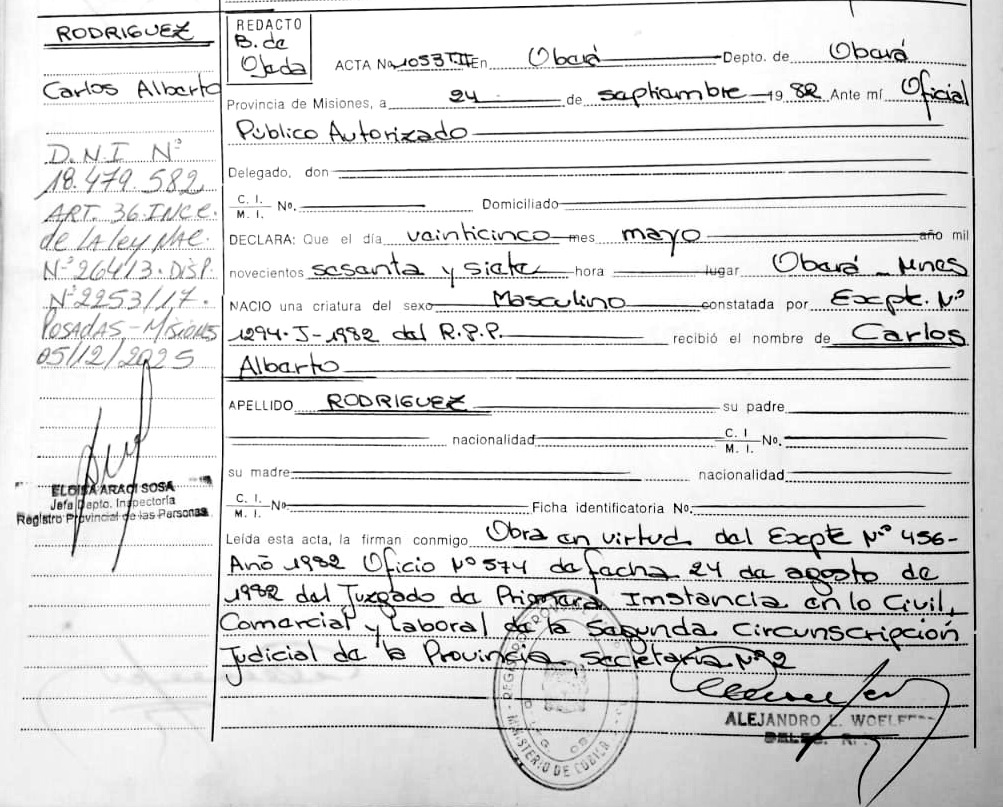 RODRIGUEZ
Carlos Alberto
D.N.I Nº
18.479.582
ART. 36. INC C.
de LA ley NAC.
Nº 26413. DISP.
Nº 2253/17.
POSADAS - MISIONES
05/12/2025
ELOISA ARACI SOSA
Jefa Depto. Inspectoría
Registro Provincial de las Personas
REDACTO
B. de
Ojeda
ACTA No 1053 TIII En Oberá Depto. de Oberá
Provincia de Misiones, a 24 de septiembre 19 82 Ante mí Oficial
Público Autorizado
Delegado, don
C. I.
M. I. No. Domiciliado
DECLARA: Que el día veinticinco mes mayo año mil
novecientos sesenta y siete hora lugar Oberá - Mnes
NACIO una criatura del sexo Masculino constatada por Expte. Nº
1294-J-1982 del R.P.P. recibió el nombre de Carlos
Alberto
APELLIDO RODRIGUEZ su padre
nacionalidad C. I M. I. No.
su madre nacionalidad
C. I. M. I. No Ficha identificatoria No.
Leída esta acta, la firman conmigo Obra en virtud del Expte Nº 456-
Año 1982 Oficio Nº 574 de fecha 24 de agosto de
1982 del Juzgado de Primera Instancia en lo Civil,
Comercial y Laboral de la Segunda Circunscripción
Judicial de la Provincia, Secretaría Nº 2
MINISTERIO DE GOBIER
ALEJANDRO L. WOELF
DELEG. R.